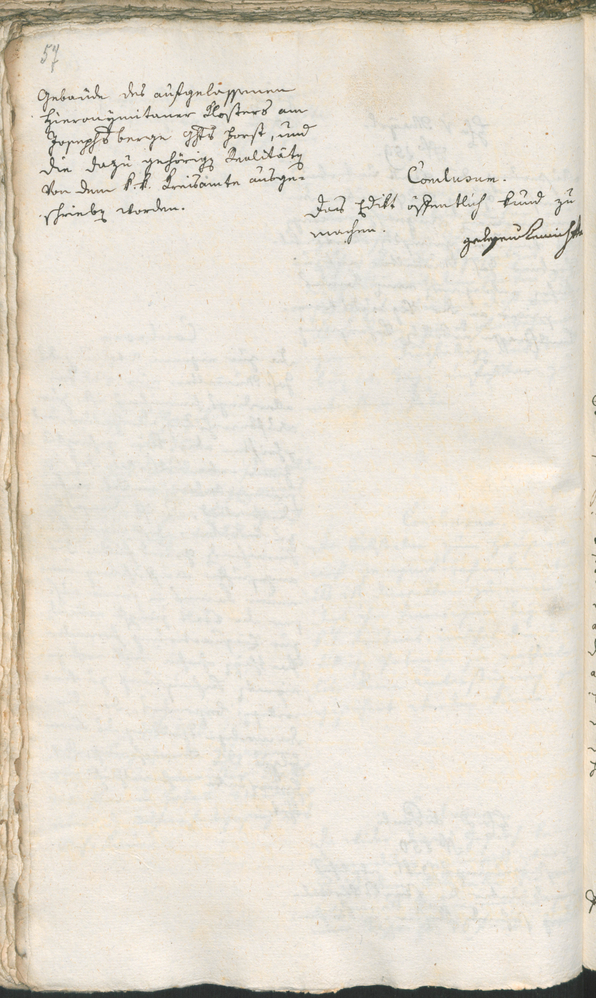 57
Gebäude des aufgelassenen
Hieronymitaner Klosters am
Josephsberge Ghts Horst, und
die dazu gehörigg Realitätg
von dem k.k. Kreisamte ausge-
schriebg worden.
Conclusum.
Das Edikt öffentlich kund zu
machen.